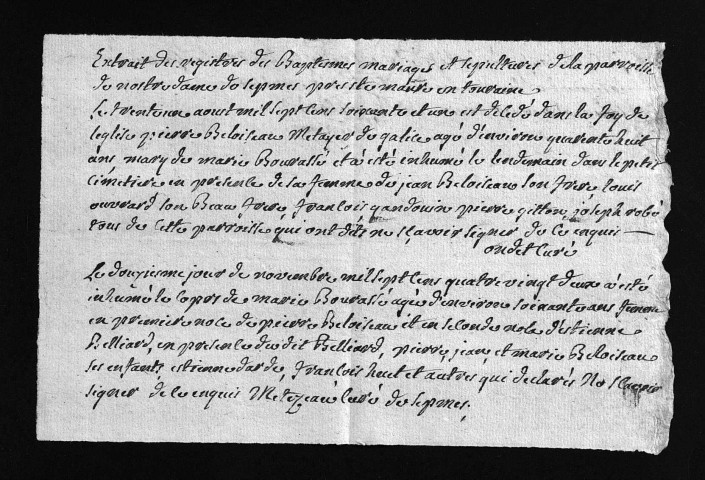 Extrait des registres des Baptesmes mariages et sepultures de la parroisse
de nostre dame de sepmes pres ste maure en touraine
Le trente une aoust mil sept cens soixante et une est decedé dans la foy de
leglise pierre Beloiseau metayer de galice agé denviron quarente huit
ans mary de marie Bourassé et a été enhumé le lendemain dans le petit
cimetiere en presence de sa femme de jean Beloiseau son frere louis
ouvrard son beau frere francois gaudouin pierre gitton joseph robé
tous de cette parroisse qui ont dits ne scavoir signer de ce enquis
ondet Curé
Le dousieme jour de novembre mil sept cens quatre vingt deux a été
inhumé le corps de marie Bourassé agée denviron soixante ans femme
en premiere noce de pierre Beloiseau et en seconde noce destienne
Belliard, en presence du dit Belliard, pierre, jean et marie Beloiseau
ses enfants estienne dardé, francois huet et autres qui declarés ne scavoir
signer de ce enquis Metezeau curé de sepmes.